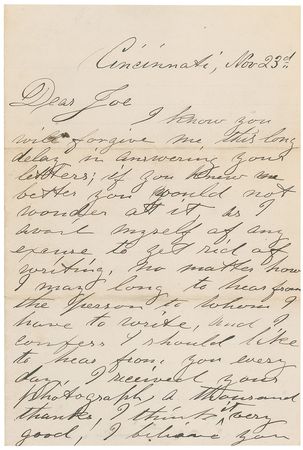 Cincinnati, Nov 23d.
Dear Joe
I know you
will forgive me, this long
delay in answering your
letters; if you knew me
better you would not
wonder at it, as I
avail myself of any
excuse to get rid of
writing, no matter how
I may long to hear from
the person to whom I
have to write, and I
confess I should like
to hear from you every
day, I received your
photograph, a thousand
thanks, I think it very
good, I believe you